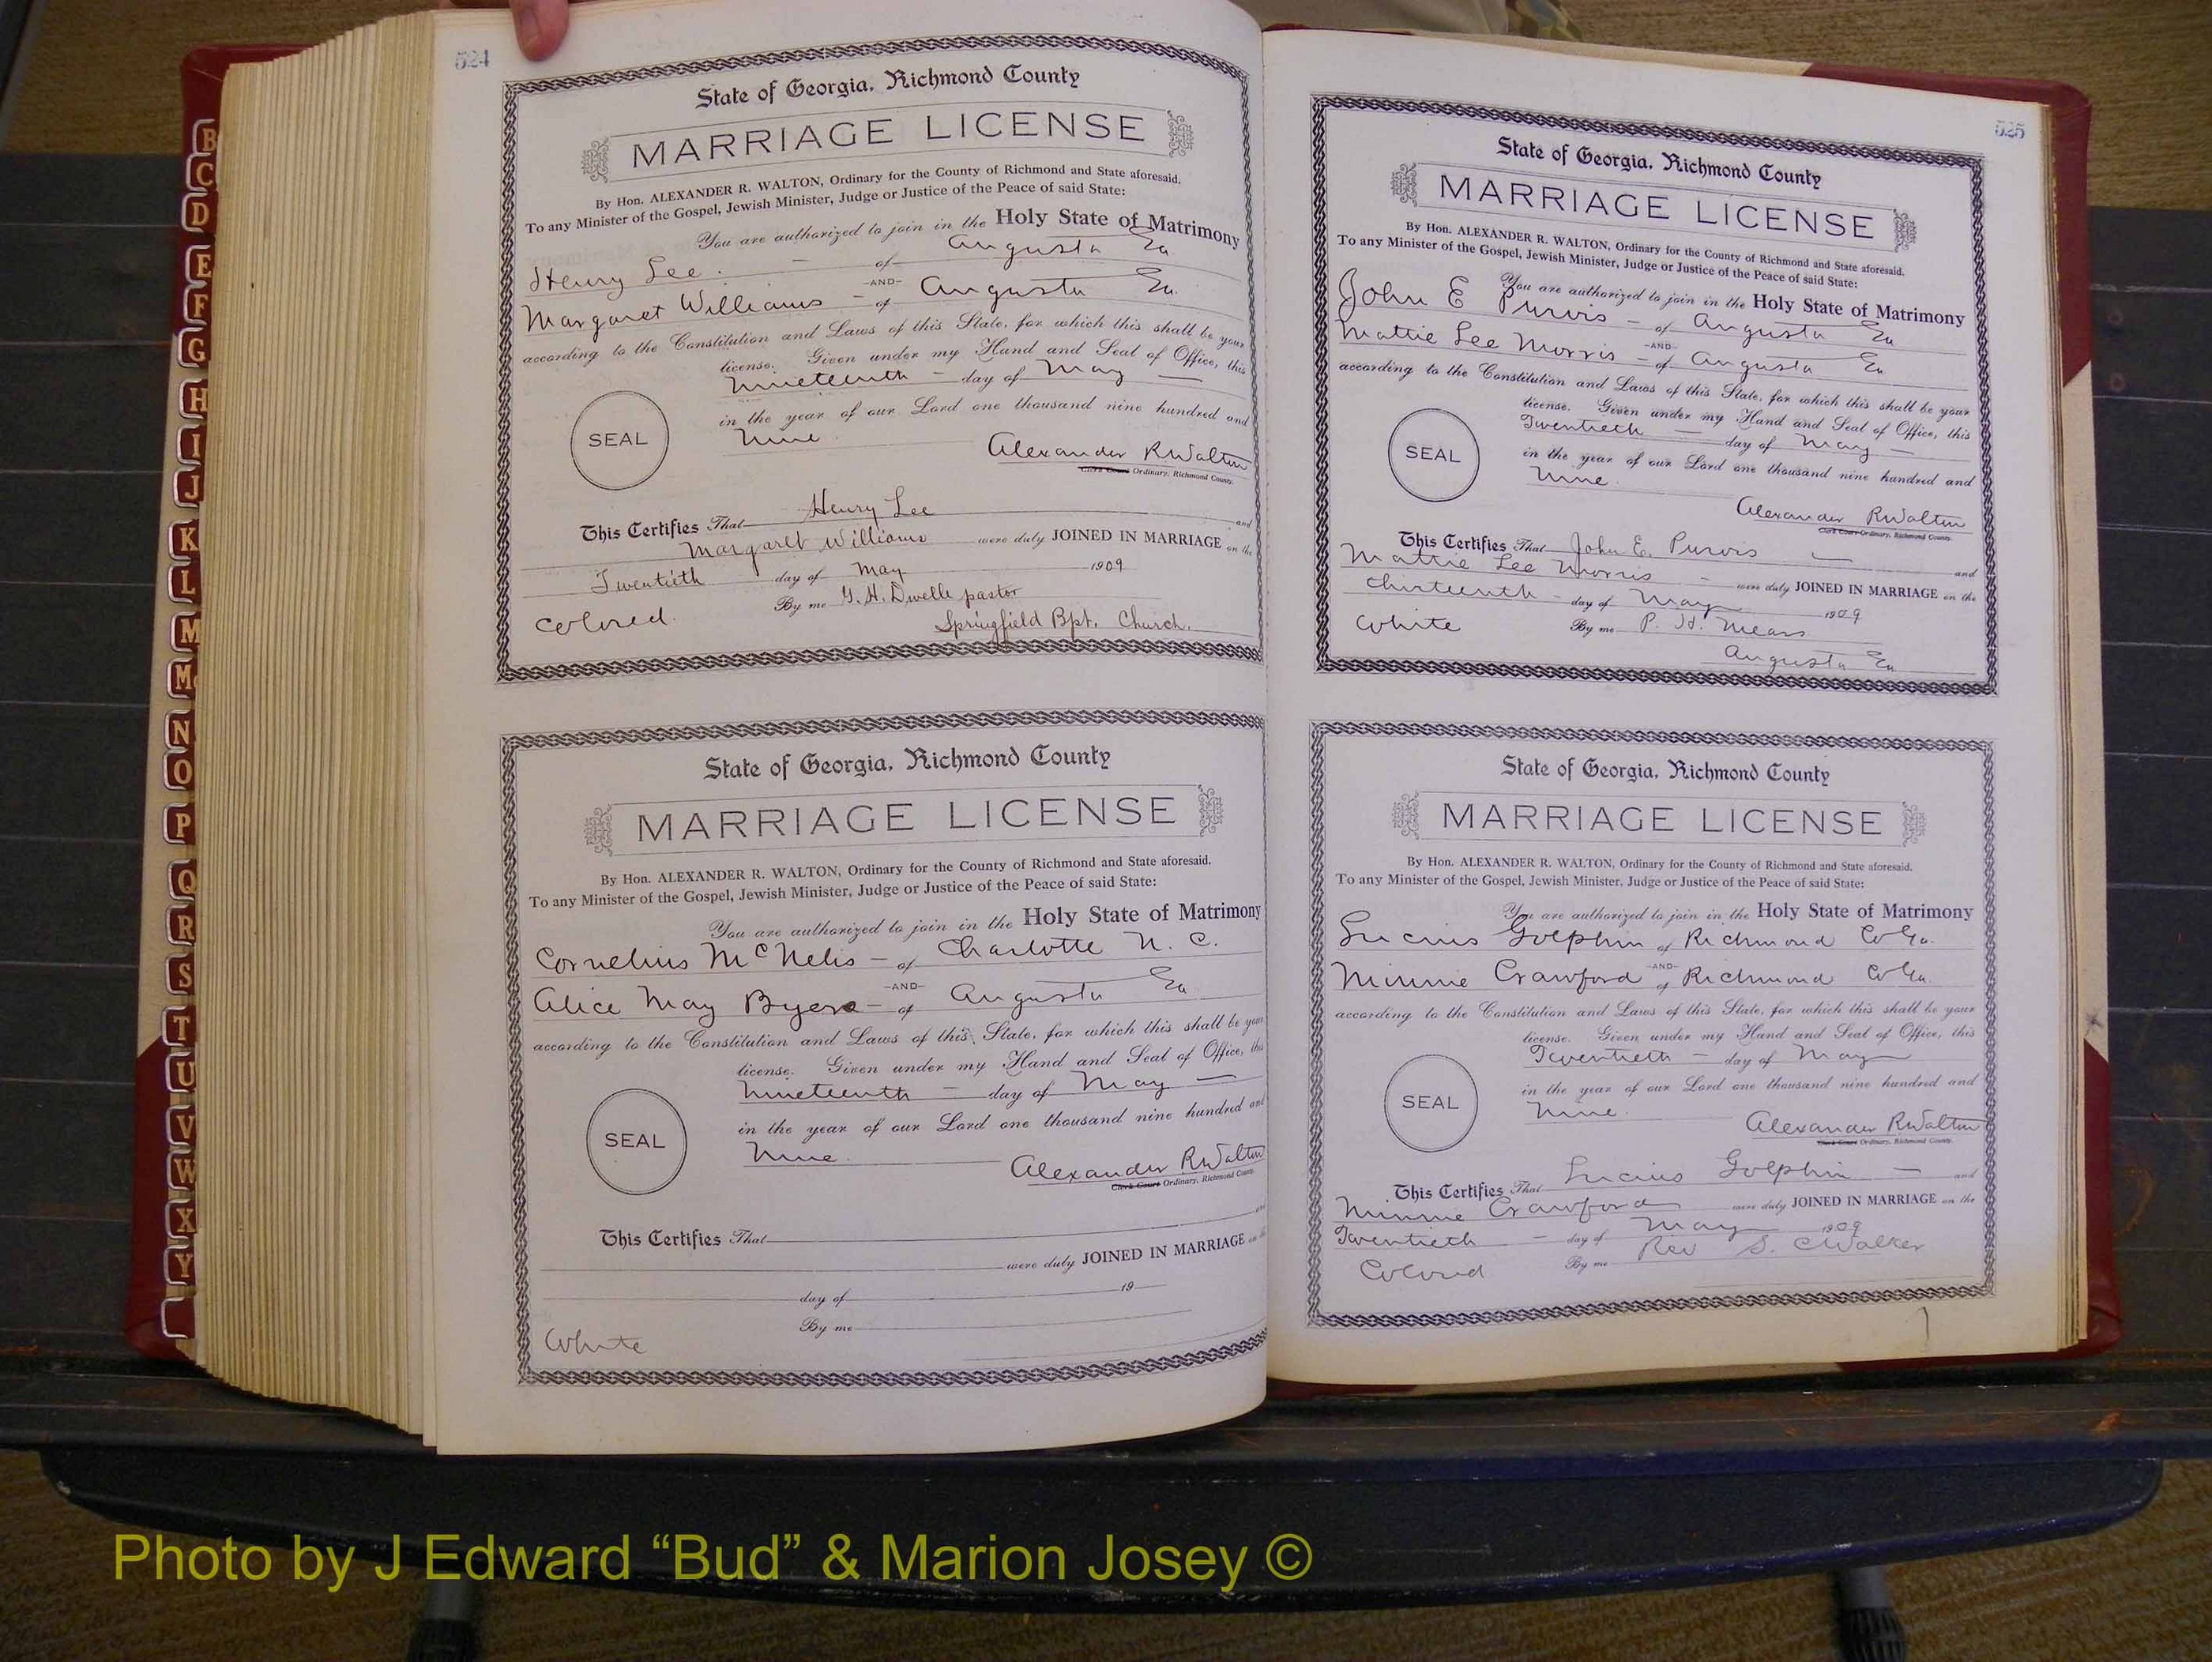 B
C
D
E
F
G
H
I
J
K
L
M
Mc
N
O
P
Q
R
S
T
U
V
W
X
Y
524
State of Georgia, Richmond County
MARRIAGE LICENSE
By Hon. ALEXANDER R. WALTON, Ordinary for the County of Richmond and State aforesaid.
To any Minister of the Gospel, Jewish Minister, Judge or Justice of the Peace of said State:
You are authorized to join in the Holy State of Matrimony
Henry Lee. – of Augusta Ga
-AND-
Margaret Williams – of Augusta Ga.
according to the Constitution and Laws of this State, for which this shall be your
license. Given under my Hand and Seal of Office, this
nineteenth – day of May –
in the year of our Lord one thousand nine hundred and
nine.
SEAL
Alexander R Walton
Clerk Court Ordinary, Richmond County.
This Certifies That Henry Lee and
Margaret Williams were duly JOINED IN MARRIAGE on the
Twentieth day of May 1909
By me G. H. Dwelle pastor
Colored. Springfield Bpt. Church.
State of Georgia, Richmond County
MARRIAGE LICENSE
By Hon. ALEXANDER R. WALTON, Ordinary for the County of Richmond and State aforesaid.
To any Minister of the Gospel, Jewish Minister, Judge or Justice of the Peace of said State:
You are authorized to join in the Holy State of Matrimony
Cornelius McNelis – of Charlotte N. C.
-AND-
Alice May Byers – of Augusta Ga
according to the Constitution and Laws of this State, for which this shall be your
license. Given under my Hand and Seal of Office, this
nineteenth – day of May –
in the year of our Lord one thousand nine hundred and
nine.
SEAL
Alexander R Walton
Clerk Court Ordinary, Richmond County.
This Certifies That and
were duly JOINED IN MARRIAGE on the
day of 19
By me
White
525
State of Georgia, Richmond County
MARRIAGE LICENSE
By Hon. ALEXANDER R. WALTON, Ordinary for the County of Richmond and State aforesaid.
To any Minister of the Gospel, Jewish Minister, Judge or Justice of the Peace of said State:
You are authorized to join in the Holy State of Matrimony
John E Purvis – of Augusta Ga
-AND-
Mattie Lee Morris – of Augusta Ga
according to the Constitution and Laws of this State, for which this shall be your
license. Given under my Hand and Seal of Office, this
Twentieth – day of May –
in the year of our Lord one thousand nine hundred and
nine.
SEAL
Alexander R Walton
Clerk Court Ordinary, Richmond County.
This Certifies That John E. Purvis – and
Mattie Lee Morris – were duly JOINED IN MARRIAGE on the
thirteenth – day of May 1909
White By me P. H. Mears
Augusta Ga
State of Georgia, Richmond County
MARRIAGE LICENSE
By Hon. ALEXANDER R. WALTON, Ordinary for the County of Richmond and State aforesaid.
To any Minister of the Gospel, Jewish Minister, Judge or Justice of the Peace of said State:
You are authorized to join in the Holy State of Matrimony
Lucius Golphin of Richmond Co Ga.
-AND-
Minnie Crawford of Richmond Co Ga.
according to the Constitution and Laws of this State, for which this shall be your
license. Given under my Hand and Seal of Office, this
Twentieth – day of May
in the year of our Lord one thousand nine hundred and
nine.
SEAL
Alexander R Walton
Clerk Court Ordinary, Richmond County.
This Certifies That Lucius Golphin – and
Minnie Crawford were duly JOINED IN MARRIAGE on the
Twentieth – day of May 1909
Colored By me Rev S. C Walker
Photo by J Edward “Bud” & Marion Josey ©